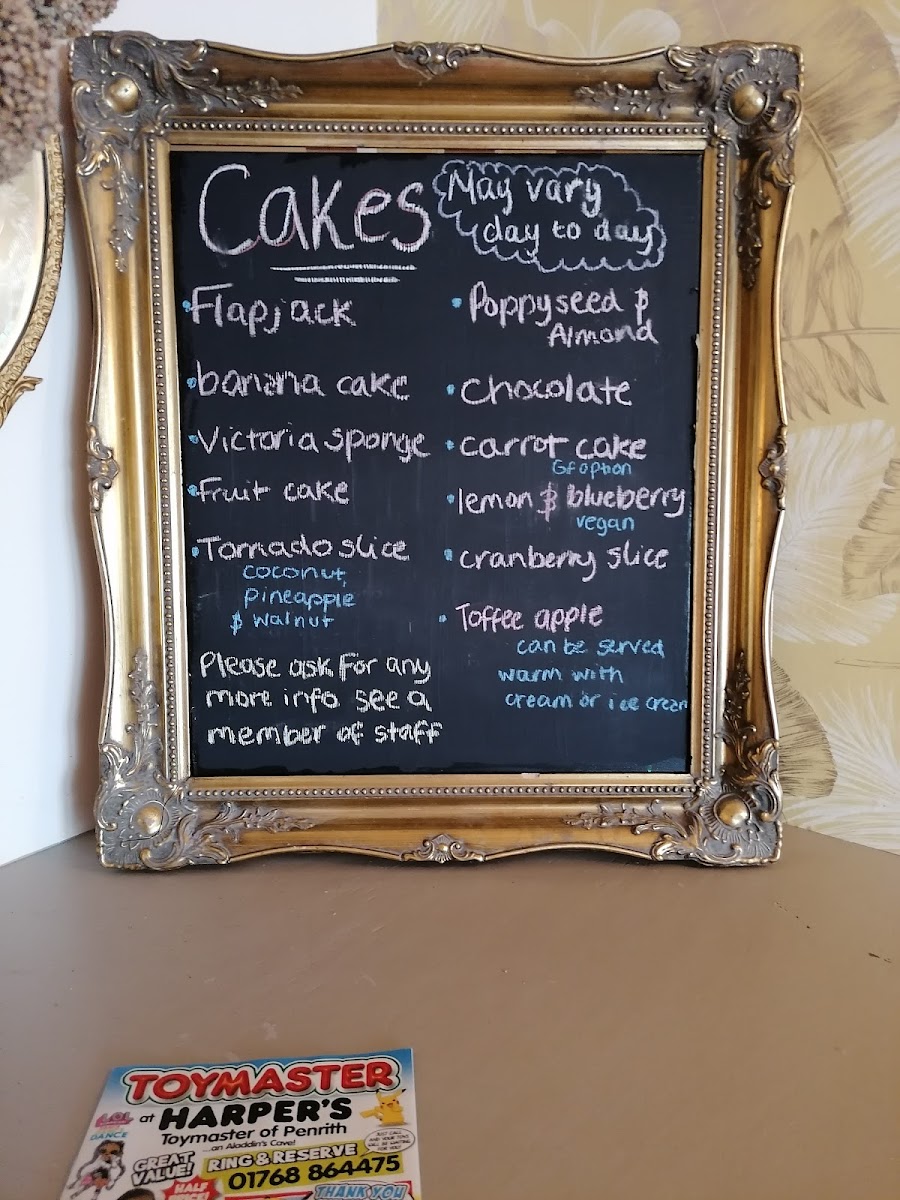 Cakes
May vary
day to day
Flapjack
banana cake
Victoria sponge
Fruit cake
Tornado slice
coconut,
pineapple
& walnut
Please ask for any
more info see a
member of staff
Poppyseed &
Almond
Chocolate
carrot cake
GF option
lemon & blueberry
vegan
cranberry slice
Toffee apple
can be served
warm with
cream or ice cream
TOYMASTER
at HARPER'S
Toymaster of Penrith
...an Aladdin's Cave!
LOL
DANCE
GREAT
VALUE!
RING & RESERVE
01768 864475
JUST CALL
AND YOUR TOYS
WILL BE WAITING
FOR YOU!
HALF
THANK YOU